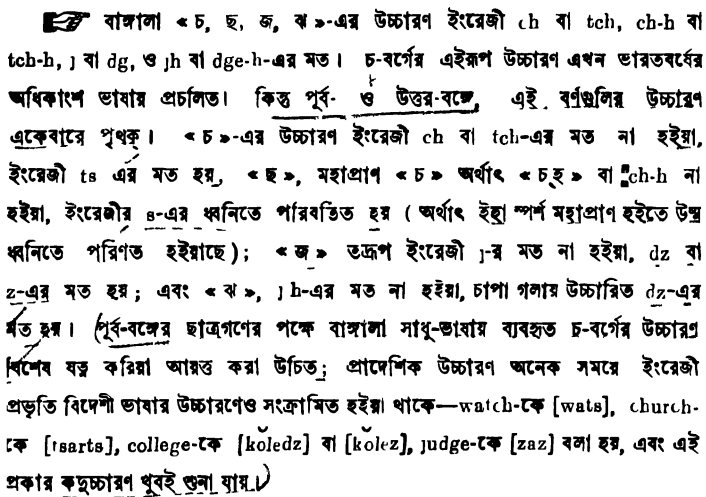 ☞ বাঙ্গালা «চ, ছ, জ, ঝ»-এর উচ্চারণ ইংরেজী ch বা tch, ch-h বা
tch-h, j বা dg, ও jh বা dge-h-এর মত। চ-বর্গের এইরূপ উচ্চারণ এখন ভারতবর্ষের
অধিকাংশ ভাষায় প্রচলিত। কিন্তু পূর্ব- ও উত্তর-বঙ্গে, এই বর্ণগুলির উচ্চারণ
একেবারে পৃথক্। «চ»-এর উচ্চারণ ইংরেজী ch বা tch-এর মত না হইয়া,
ইংরেজী ts এর মত হয়, «ছ», মহাপ্রাণ «চ» অর্থাৎ «চ্‌হ» বা ch-h না
হইয়া, ইংরেজীর s-এর ধ্বনিতে পরিবর্তিত হয় (অর্থাৎ ইহা স্পর্শ মহাপ্রাণ হইতে উষ্ম
ধ্বনিতে পরিণত হইয়াছে); «জ» তদ্রূপ ইংরেজী j-র মত না হইয়া, dz বা
z-এর মত হয়; এবং «ঝ», jh-এর মত না হইয়া, চাপা গলায় উচ্চারিত dz-এর
মত হয়। (পূর্ব-বঙ্গের ছাত্রগণের পক্ষে বাঙ্গালা সাধু-ভাষায় ব্যবহৃত চ-বর্গের উচ্চারণ
বিশেষ যত্ন করিয়া আয়ত্ত করা উচিত; প্রাদেশিক উচ্চারণ অনেক সময়ে ইংরেজী
প্রভৃতি বিদেশী ভাষার উচ্চারণেও সংক্রামিত হইয়া থাকে—watch-কে [wats], church-
কে [tsarts], college-কে [kŏledz] বা [kŏlez], judge-কে [zaz] বলা হয়, এবং এই
প্রকার কদুচ্চারণ খুবই শুনা যায়।)